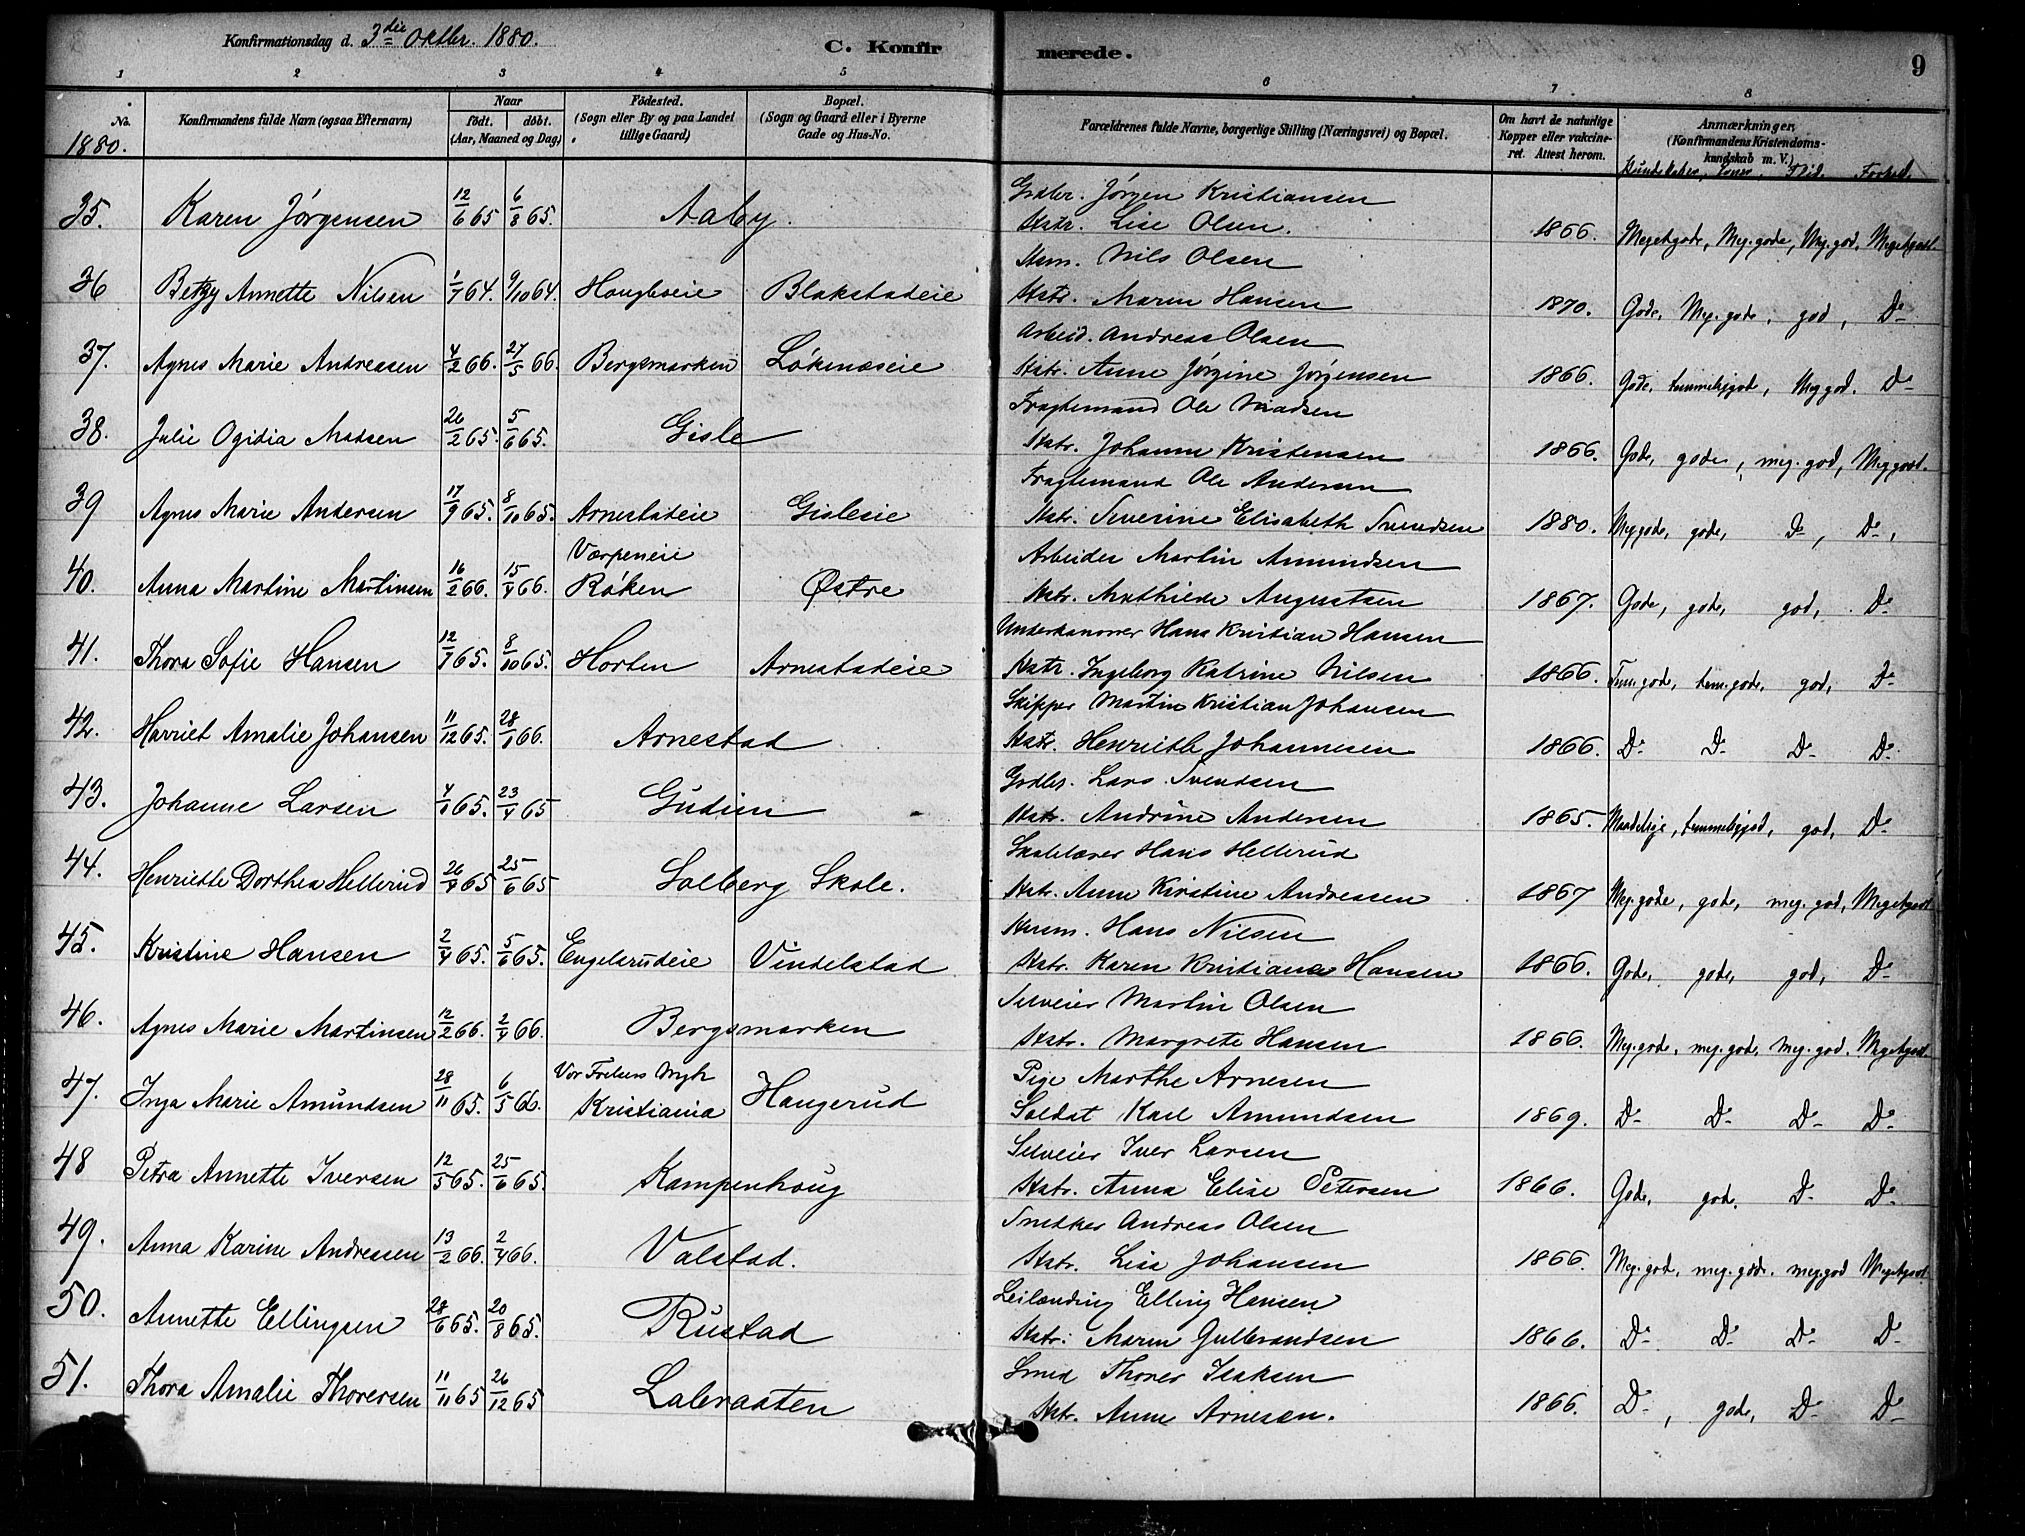 Konfirmationsdag d. 3die Oktbr. 1880. C. Konfirmerede. 9
1 2 3 4 5 6 7 8
No. Konfirmandens fulde Navn (ogsaa Efternavn) Naar født. døbt. (Aar, Maaned og Dag) Fødested. (Sogn eller By og paa Landet tillige Gaard) Bopæl. (Sogn og Gaard eller i Byerne Gade og Hus-No. Forældrenes fulde Navne, borgerlige Stilling (Næringsvei) og Bopæl. Om havt de naturlige Kopper eller vakcineret. Attest herom. Anmærkninger. (Konfirmandens Kristendomskundskab m. V.)
1880.
Grdbr. Jörgen Kristiansen
35. Karen Jörgensen 12/6 65 6/8 65. Aaby. Hstr. Lise Olsen. 1866. Megetgode, Meg. gode, Meg. god, Megetgod
Hsm. Nils Olsen
36 Betzy Annette Nilsen 1/7 64. 9/10 64. Hougbeie Blakstadeie Hstr. Maren Hansen 1870. Gode, Meg. gode, god, Do
Arbeid. Andreas Olsen
37. Agnes Marie Andreasen 4/2 66. 27/5 66. Bergsmarken Lökenæseie Hstr. Anne Jörgine Jörgensen 1866. Gode, temmeliggod, Meg god. Do
Fragtemand Ole Madsen
38. Julie Ogidia Madsen 26/2 65. 5/6 65. Gisle Hstr. Johanne Kristensen 1866. Gode, gode, meg. god, Meg god.
Fragtemand Ole Andersen
39 Agnes Marie Andersen 17/9 65. 8/10 65. Arnestadeie Gisleeie Hstr. Severine Elisabeth Svendsen 1880. Meg gode, gode, Do, Do,
Værpeneie Arbeider Martin Amundsen
40. Anna Martine Martinsen 16/2 66. 15/4 66. Röken Östre Hstr. Mathilde Augustsen 1867. Gode, gode, god, Do
Underkanoner Hans Kristian Hansen
41. Thora Sofie Hansen 12/7 65. 8/10 65. Horten Arnestadeie Hstr. Ingeborg Katrine Nilsen 1866. Tem. god, tem. gode, god, Do
Skipper Martin Kristian Johansen
42. Harriet Amalie Johansen 11/12 65. 28/1 66. Arnestad Hstr. Henriette Johannesen 1866. Do Do Do Do
Grdbr. Lars Svendsen
43. Johanne Larsen 4/1 65. 23/4 65 Gudim Hstr. Andrine Andersen 1865. Maadelige, temmeliggod, god, Do
Skolelærer Hans Hellerud
44. Henriette Dorthea Hellerud 26/4 65 25/6 65 Solberg Skole. Hstr. Anne Kirstine Andreasen 1867 Meg. gode, gode, meg. god, Megetgod
Husm. Hans Nilsen
45. Kristine Hansen 2/4 65. 5/6 65. Engelsrudeie Vindelstad Hstr. Karen Kristiane Hansen 1866. Gode, gode, god, Do
Selveier Martin Olsen
46. Agnes Marie Martinsen 12/2 66. 2/4 66. Bergsmarken Hstr. Margrete Hansen 1866. Meg. gode, meg. gode, Meg. god. Megetgod.
Vor Frelsers Mgh Pige Marthe Arnesen
47. Inga Marie Amundsen 28/11 65. 6/5 66. Kristiania Haugerud Soldat Karl Amundsen 1869. Do Do Do Do
Selveier Iver Larsen
48 Petra Annette Iversen 12/5 65. 25/6 65. Kampenhoug Hstr. Anna Elise Petersen 1866. Gode, gode. Do Do
Snedker Andreas Olsen
49. Anna Karine Andreasen 13/2 66. 2/4 66. Valstad. Hstr. Lisa Johansen 1866. Meg. god, meg. gode. meg god Megetgod
Leilænding Elling Hansen
50. Annette Ellingsen 28/6 65. 20/8 65. Rustad Hstr. Maren Gulbrandsen 1866. Do Do Do Do
Smed Thorer Isaksen
51. Thora Amalie Thorersen 11/11 65 26/12 65 Labraaten Hstr. Anne Arnesen. 1866. Do, gode, Do Do